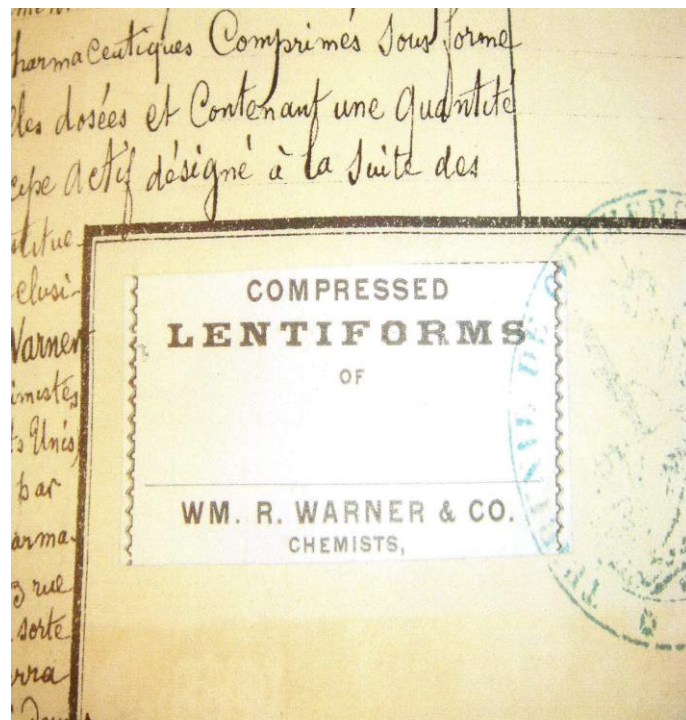 harmaceutiques Comprimés sous forme
lles dosées et Contenant une quantité
cipe actif désigné à la suite des
stitue
clusi-
Warner
imistes
ts Unis,
par
arma-
3 rue
sorte
erra
COMPRESSED
LENTIFORMS
OF
WM. R. WARNER & CO.
CHEMISTS,
TRIBUNAL DE COMMERCE